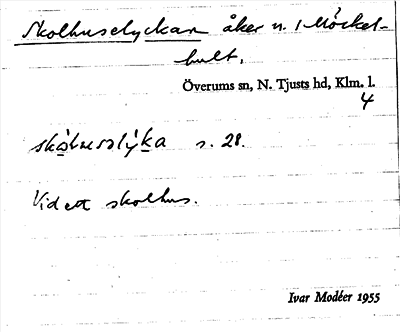 Skolhuselyckan åker n. 1 Möckel-
hult.
Överums sn, N. Tjusts hd, Klm. l.
4
s. 28.
Vid ett skolhus.
Ivar Modéer 1955